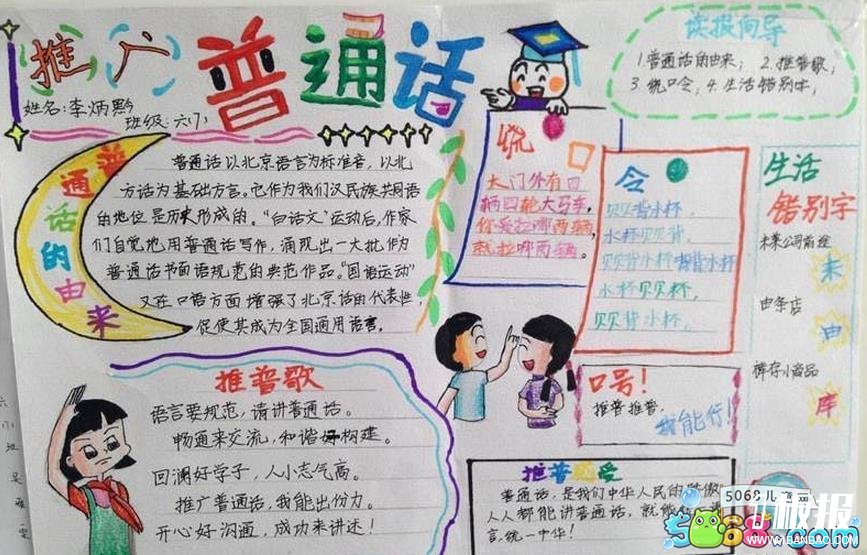 推广普通话
姓名:李炳黔
班级:六(1)
读报向导
1.普通话的由来; 2.推普歌;
3.绕口令; 4.生活错别字;
普通话的由来
普通话以北京语言为标准音,以北
方话为基础方言。它作为我们汉民族共同语
的地位是历史形成的。“白话文”运动后,作家
们自觉地用普通话写作,涌现出一大批作为
普通话书面语规范的典范作品。“国语运动”
又在口语方面增强了北京话的代表性,
促使其成为全国通用语言。
绕口
大门外有四
辆四轮大马车,
你爱拉哪两辆,
就拉哪两辆。
令
贝贝背水杯,
水杯贝贝背。
贝贝背水杯背背水杯
水杯贝贝杯,
贝贝背水杯。
生活
错别字
末某公司前途
未
由条店
由
裤存小商品
库
推普歌
语言要规范,请讲普通话。
畅通来交流,和谐构建。
回澜好学子,人小志气高。
推广普通话,我能出份力。
开心好沟通,成功来讲述!
口号!
推普推普,
我能行!
推普感受
普通话,是我们中华人民的骄傲
人人都能讲普通话,就能
言,统一中华!
六
小
班
吴
5068儿童网
5068.com
板报
WWW.BANBAO.COM